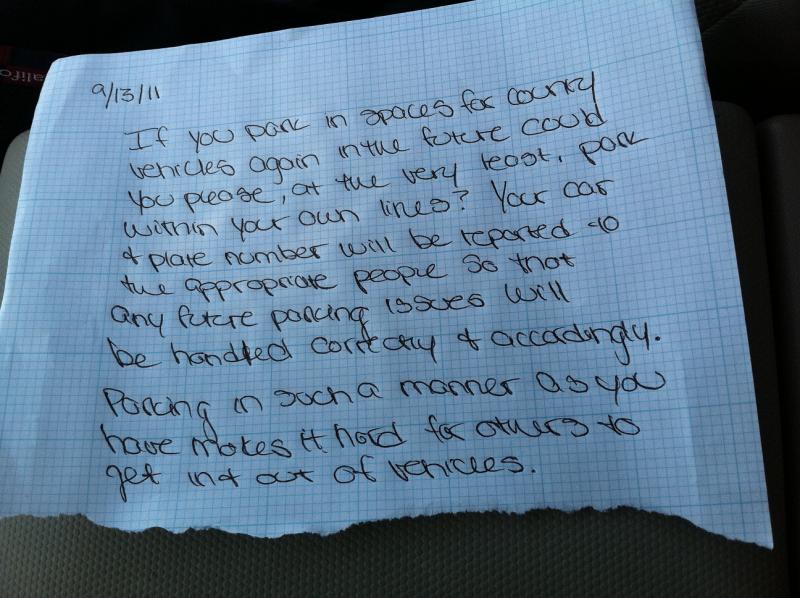 9/13/11
If you park in spaces for county
vehicles again in the future could
you please, at the very least, park
within your own lines? Your car
& plate number will be reported to
the appropriate people so that
any future parking issues will
be handled correctly & accordingly.
Parking in such a manner as you
have makes it hard for others to
get in & out of vehicles.
alifo